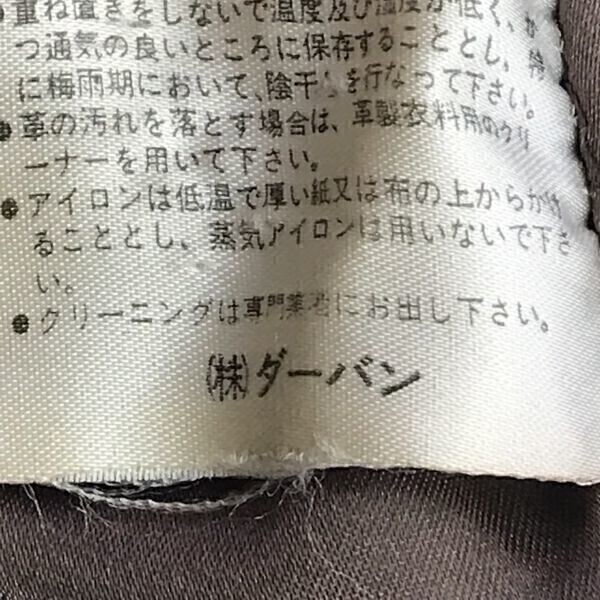 ●重ね置きをしないで温度及び湿度が低く、か
つ通気の良いところに保存することとし、特
に梅雨期において、陰干しを行なって下さい。
●革の汚れを落とす場合は、革製衣料用のクリ
ーナーを用いて下さい。
●アイロンは低温で厚い紙又は布の上からかけ
ることとし、蒸気アイロンは用いないで下さ
い。
●クリーニングは専門業者にお出し下さい。
㈱ダーバン